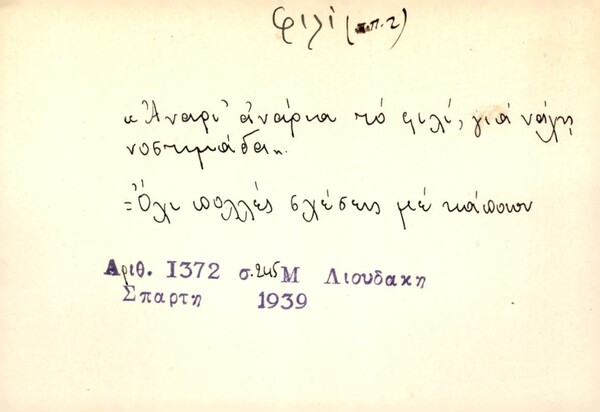 φιλί (π.π. 2)
«Ἀναρι' ἀνάρια τό φιλί, γιά νἄχῃ
νοστιμάδα».
= Ὄχι πολλές σχέσεις μέ κάποιον
Αριθ. 1372 σ. 245 Μ Λιουδακη
Σπαρτη 1939